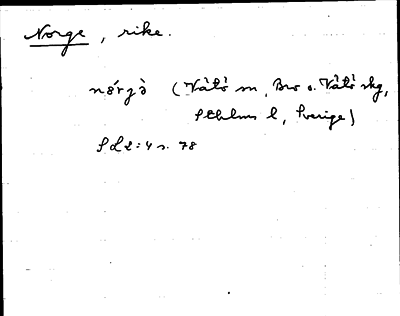 Norge, rike.
nórgò (Vätö sn, Bro o. Vätö skg,
Sthlms l, Sverige)
SdL 2:4 s. 78